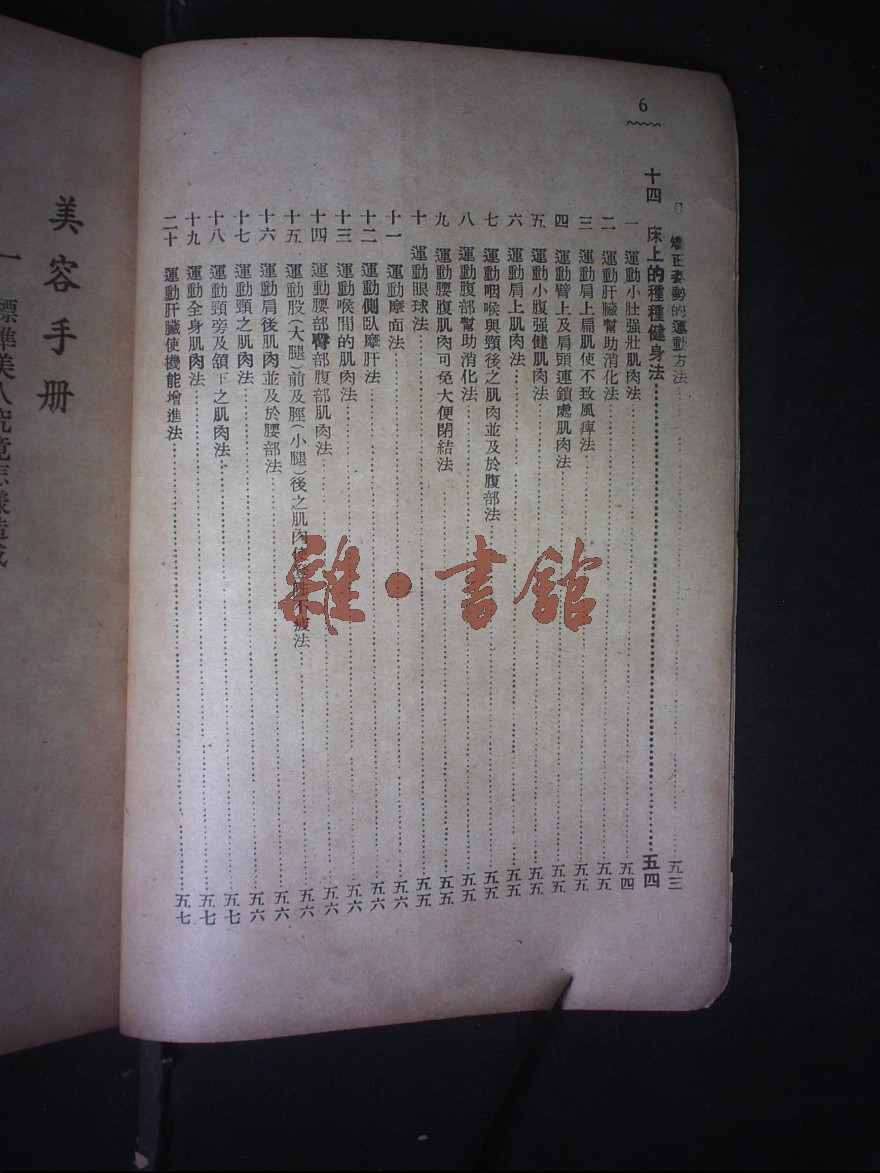 6
矯正姿勢的運動方法……五三
十四 床上的種種健身法……五四
一 運動小肚强壯肌肉法……五四
二 運動肝臟幫助消化法……五五
三 運動肩上扁肌使不致風痺法……五五
四 運動臂上及肩頭連鎖處肌肉法……五五
五 運動小腹强健肌肉法……五五
六 運動肩上肌肉法……五五
七 運動咽喉與頸後之肌肉並及於腹部法……五五
八 運動腹部幫助消化法……五五
九 運動腰腹肌肉可免大便閉結法……五五
十 運動眼球法……五五
十一 運動摩面法……五六
十二 運動側臥摩肝法……五六
十三 運動喉間的肌肉法……五六
十四 運動腰部臀部腹部肌肉法……五六
十五 運動股(大腿)前及脛(小腿)後之肌肉使不痠法……五六
十六 運動肩後肌肉並及於腰部法……五六
十七 運動頸之肌肉法……五六
十八 運動頸旁及頷下之肌肉法……五七
十九 運動全身肌肉法……五七
二十 運動肝臟使機能增進法……五七
美容手册
一 標準美人究竟怎樣造成
雜·書館